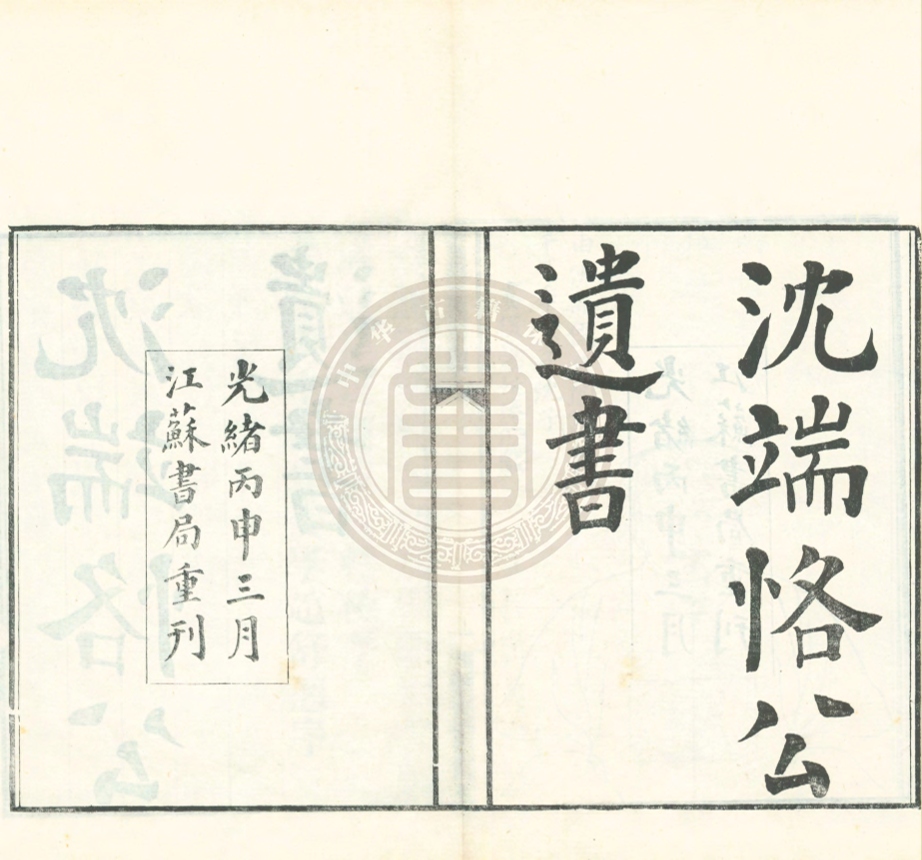 沈端恪公
遺書
光緒丙申三月
江蘇書局重刊